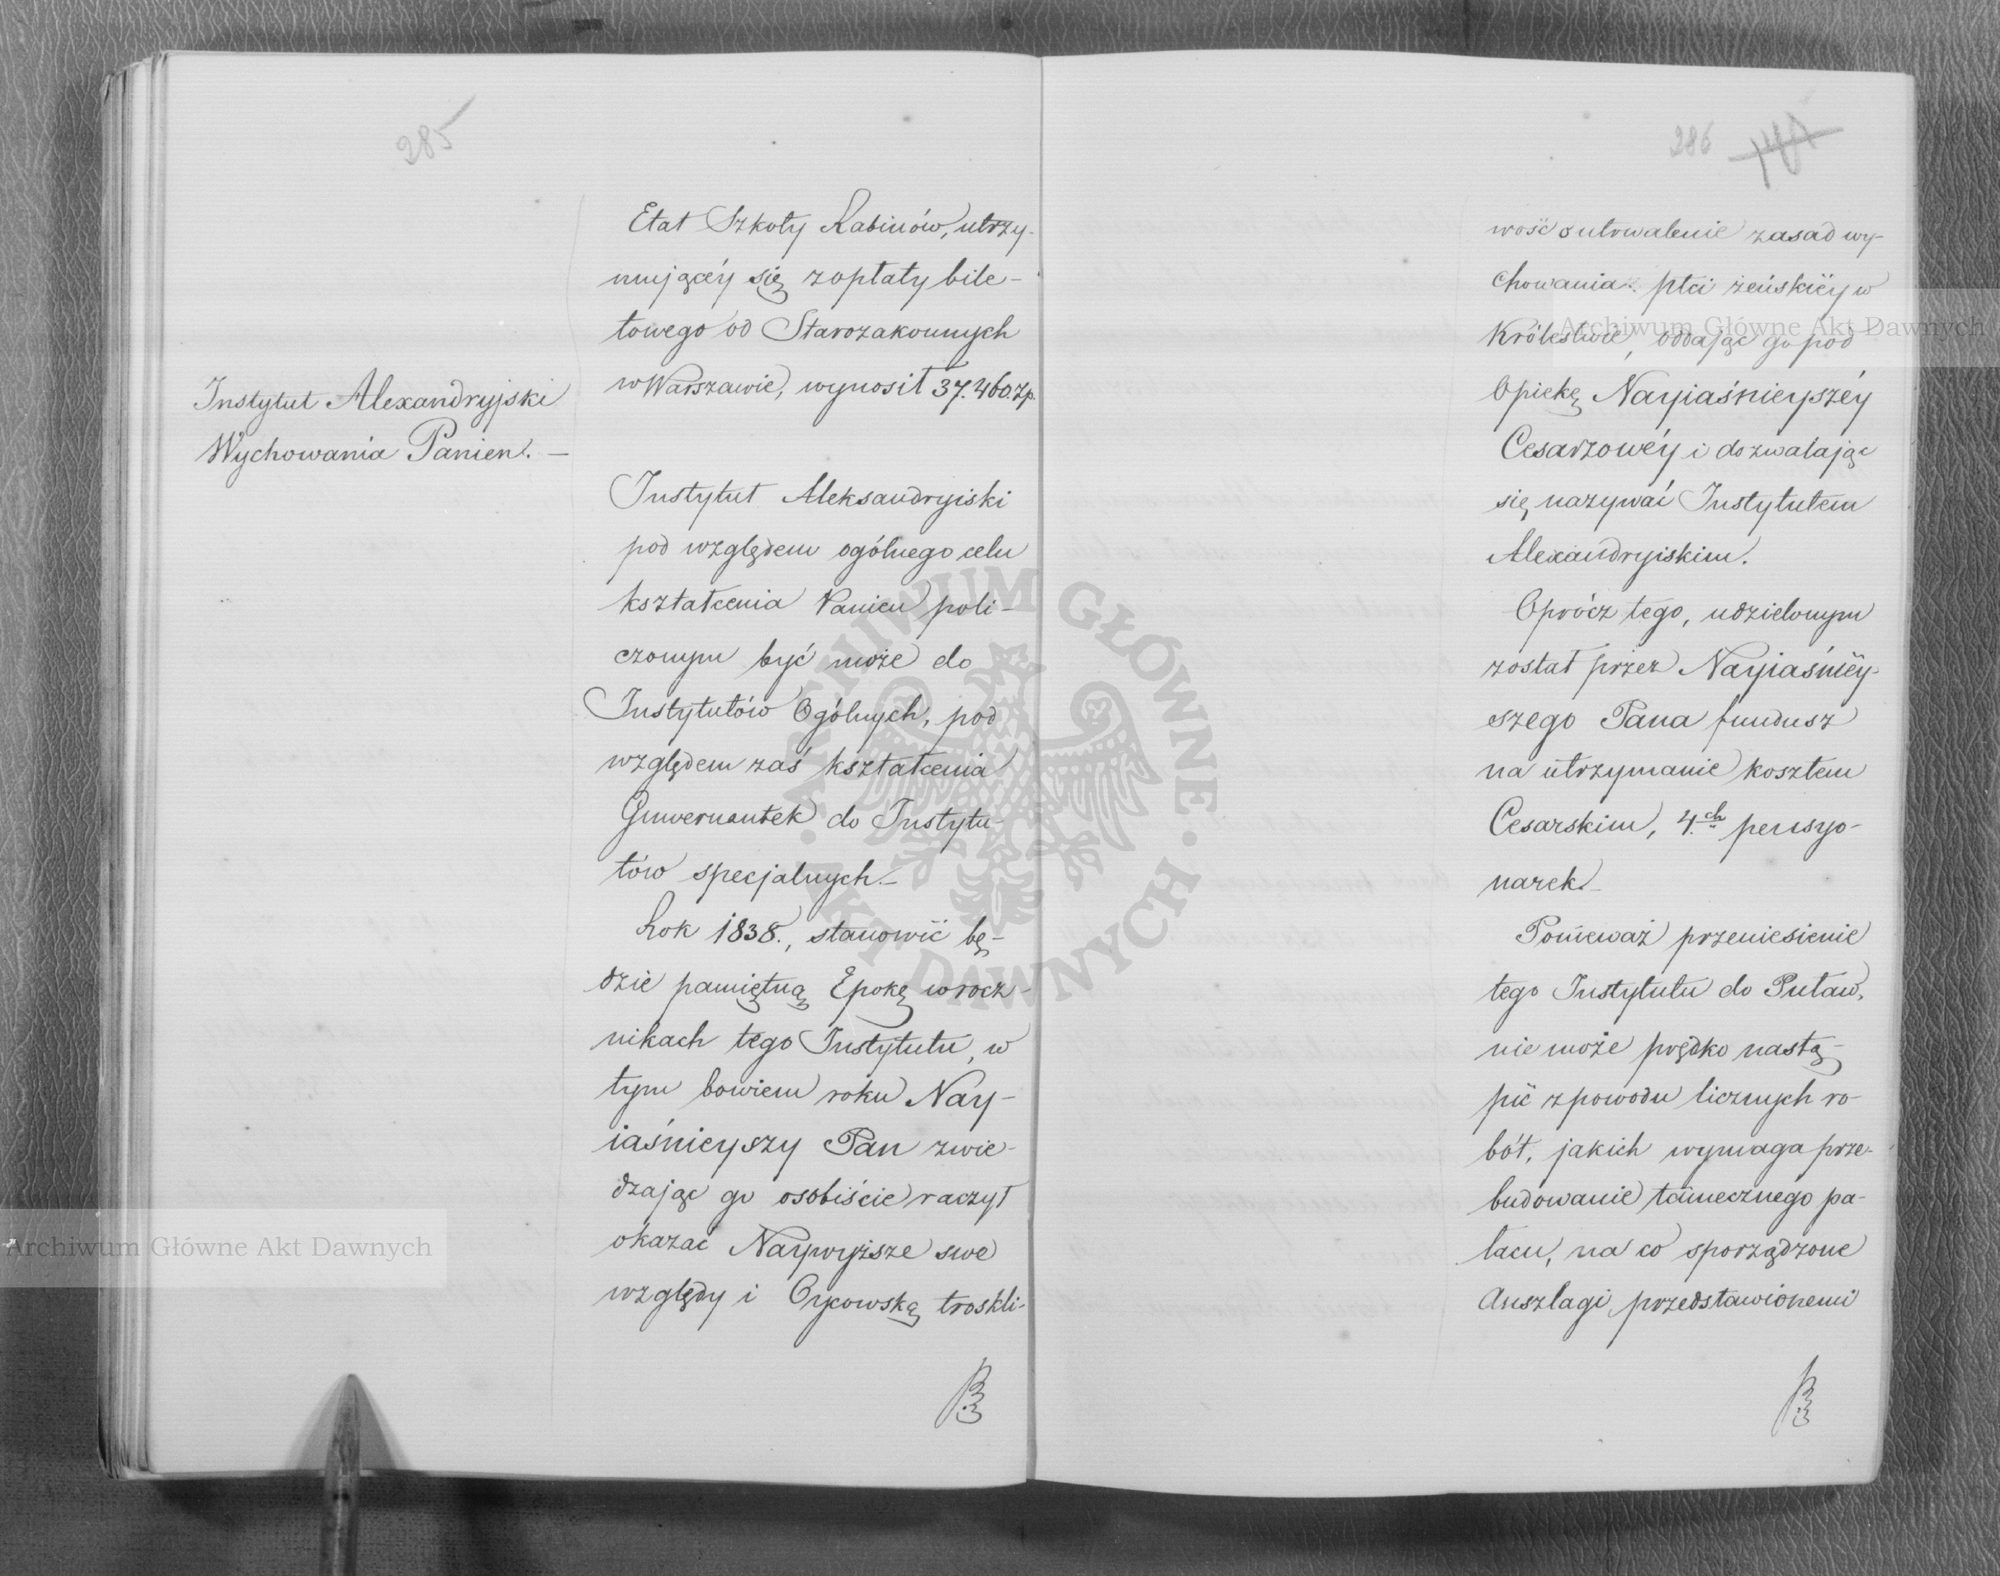 285
Instytut Alexandryjski
Wychowania Panien. —
Etat Szkoły Rabinów, utrzy-
mującéy się z opłaty bile-
towego od Starozakonnych
w Warszawie, wynosił 37.460. zp.
Instytut Aleksandryiski
pod względem ogólnego celu
kształcenia Panien poli-
czonym być może do
Instytutów Ogólnych, pod
względem zaś kształcenia
Guwernantek do Instytu-
tów specjalnych. —
Rok 1838., stanowić bę-
dzie pamiętną Epokę w rocz-
nikach tego Instytutu, w
tym bowiem roku Nay-
iaśnieyszy Pan zwie-
dzając go osobiście raczył
okazać Naywyższe swe
względy i Oycowską troskli-
286
wość o utrwalenie zasad wy-
chowania płci żeńskiéy w
Królestwie, oddając go pod
Opiekę Nayiaśnieyszéy
Cesarzowéy i dozwalając
się nazywać Instytutem
Alexandryiskim.
Oprócz tego, udzielonym
został przez Nayiaśniéy-
szego Pana fundusz
na utrzymanie kosztem
Cesarskim, 4.ch pensyo-
narek. —
Ponieważ przeniesienie
tego Instytutu do Puław,
nie może prędko nastą-
pić z powodu licznych ro-
bót, jakich wymaga prze-
budowanie tamecznego pa-
łacu, na co sporządzone
Anszlagi, przedstawionemi
Archiwum Główne Akt Dawnych
Archiwum Główne Akt Dawnych
ARCHIWUM GŁÓWNE · AKT DAWNYCH ·